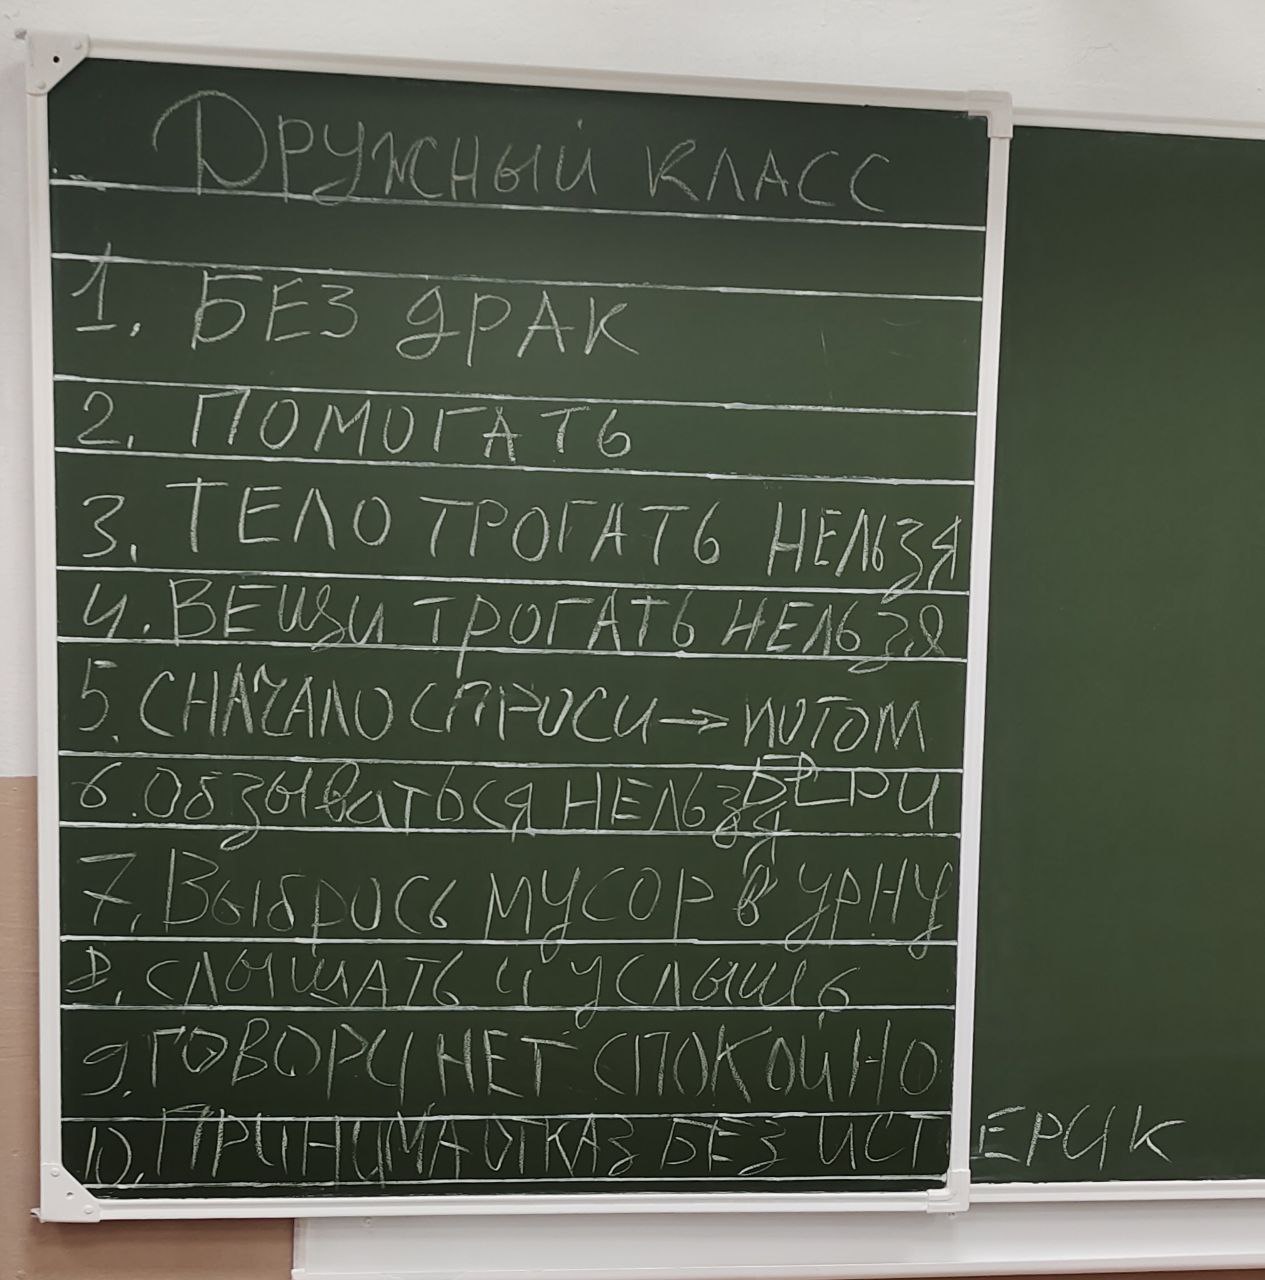 Дружный класс
1. БЕЗ ДРАК
2. ПОМОГАТЬ
3. ТЕЛО ТРОГАТЬ НЕЛЬЗЯ
4. ВЕЩИ ТРОГАТЬ НЕЛЬЗЯ
5. СНАЧАЛО СПРОСИ → ПОТОМ
БЕРИ
6. ОБЗЫВАТЬСЯ НЕЛЬЗЯ
7. ВЫБРОСЬ МУСОР В УРНУ
8. СЛЫШАТЬ И УСЛЫШЬ
9. ГОВОРИ НЕТ СПОКОЙНО
10. ПРИНИМАЙ ОТКАЗ БЕЗ ИСТЕРИК